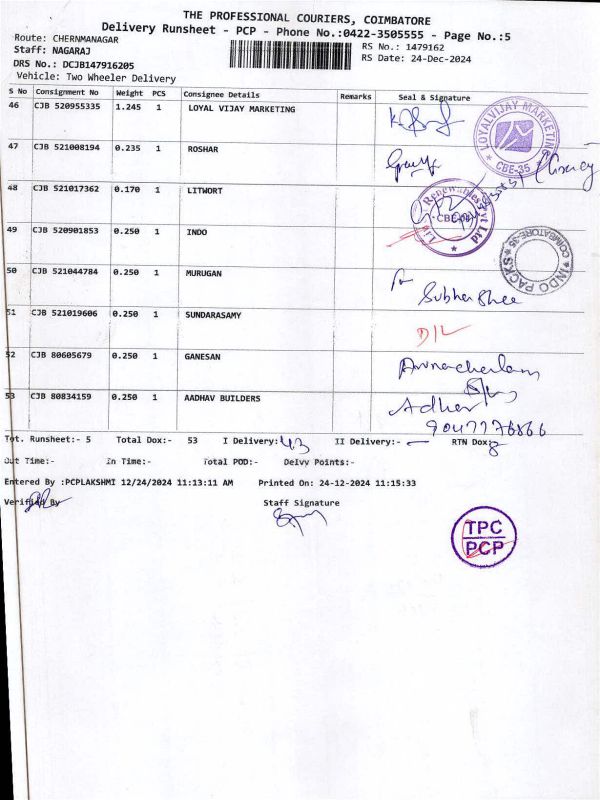 THE PROFESSIONAL COURIERS, COIMBATORE
Delivery Runsheet - PCP - Phone No.:0422-3505555 - Page No.:5
Route: CHERNMANAGAR RS No.: 1479162
Staff: NAGARAJ RS Date: 24-Dec-2024
DRS No.: DCJB147916205
Vehicle: Two Wheeler Delivery
S No Consignment No Weight PCS Consignee Details Remarks Seal & Signature
46 CJB 520955335 1.245 1 LOYAL VIJAY MARKETING
LOYALVIJAY MARKETING * CBE-35 *
47 CJB 521008194 0.235 1 ROSHAR
48 CJB 521017362 0.170 1 LITWORT
Renewables Pvt Ltd *
49 CJB 520901853 0.250 1 INDO
* INDO PACKS * COIMBATORE-35
50 CJB 521044784 0.250 1 MURUGAN
51 CJB 521019606 0.250 1 SUNDARASAMY
D/L
52 CJB 80605679 0.250 1 GANESAN
Arunachalam
53 CJB 80834159 0.250 1 AADHAV BUILDERS
Tot. Runsheet:- 5 Total Dox:- 53 I Delivery: 43 II Delivery:- — RTN Dox:
Out Time:- In Time:- Total POD:- Delvy Points:-
Entered By :PCPLAKSHMI 12/24/2024 11:13:11 AM Printed On: 24-12-2024 11:15:33
Verified By Staff Signature
TPC
PCP